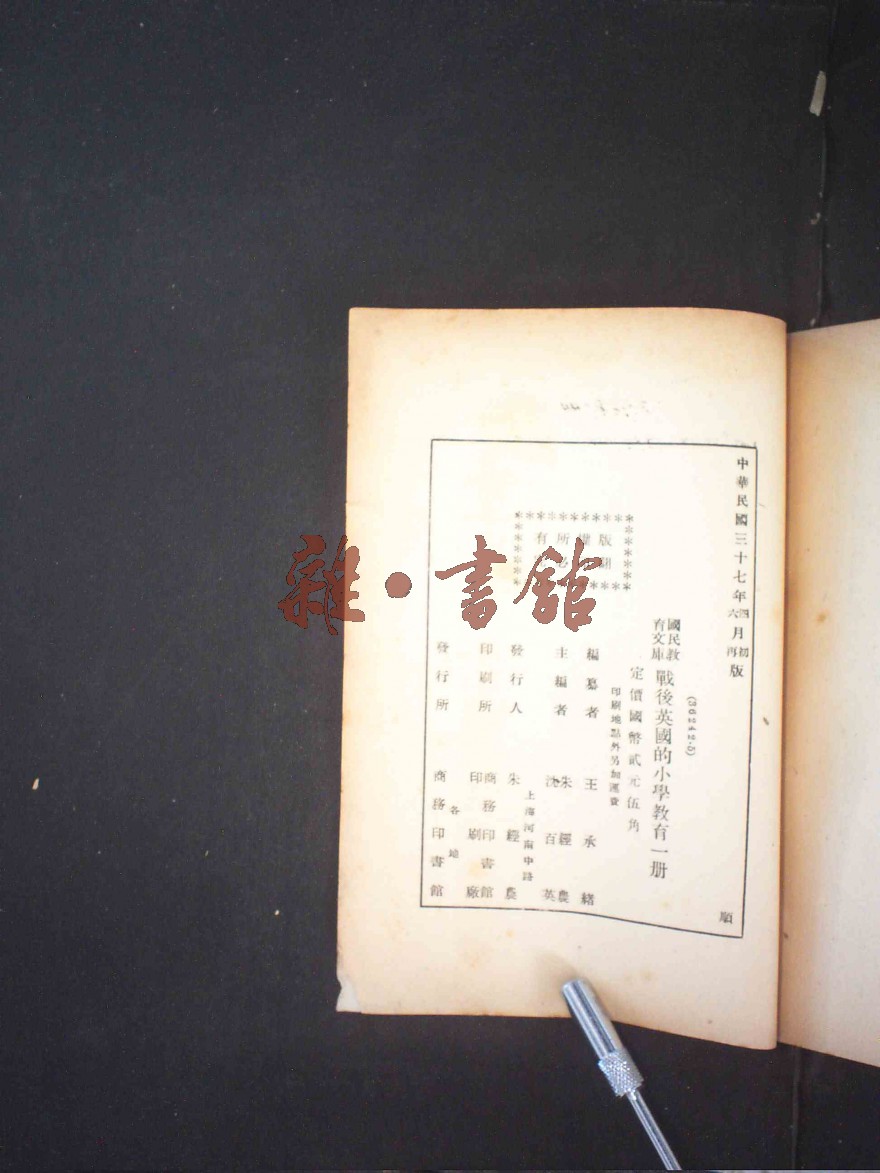 中華民國三十七年四月初版
六月再版
(36242·5)
國民教育文庫 戰後英國的小學教育一册
定價國幣貳元伍角
印刷地點外另加運費
版權所有
編纂者 王承緒
主編者 朱經農 沈百英
上海河南中路
發行人 朱經農
印刷所 商務印書館印刷廠
各地
發行所 商務印書館
順
雜·書館